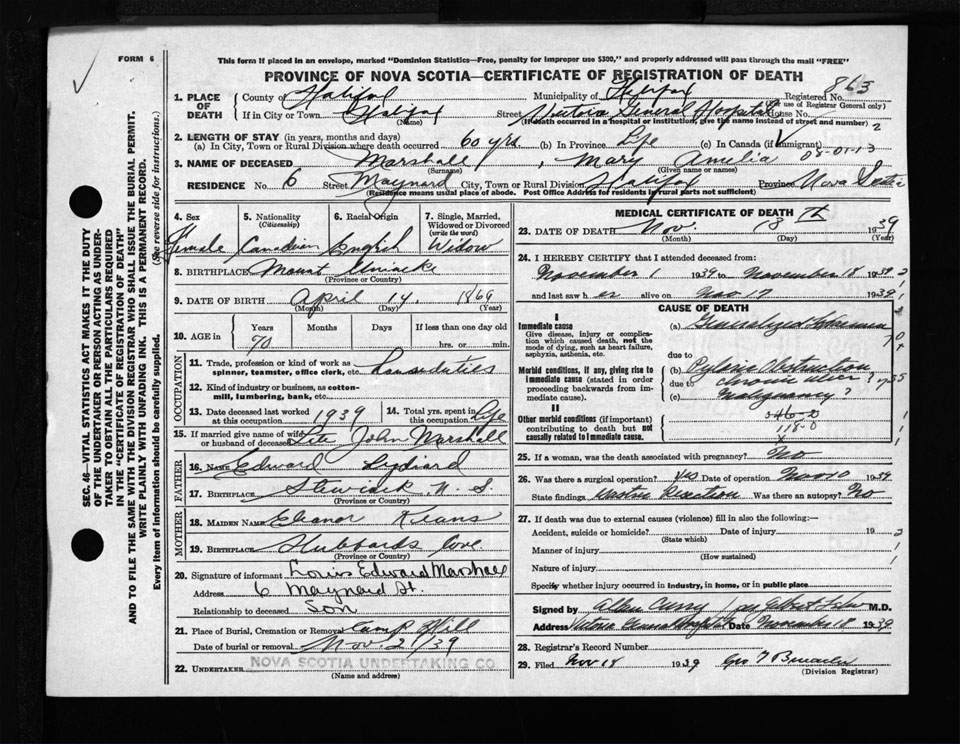 FORM 6
This form if placed in an envelope, marked "Dominion Statistics—Free, penalty for improper use $300," and properly addressed will pass through the mail "FREE"
PROVINCE OF NOVA SCOTIA—CERTIFICATE OF REGISTRATION OF DEATH
863
1. PLACE OF DEATH County of Halifax Municipality of Halifax Registered No.
(For use of Registrar General only)
If in City or Town Halifax Street Victoria General Hospital House No.
(Name) (If death occurred in a hospital or institution, give the name instead of street and number) 2
2. LENGTH OF STAY (in years, months and days)
(a) In City, Town or Rural Division where death occurred 60 yrs. (b) In Province Life (c) In Canada (if immigrant)
08-01-13
3. NAME OF DECEASED Marshall, Mary Amelia
(Surname) (Given name or names)
RESIDENCE No. 6 Street Maynard City, Town or Rural Division Halifax Province Nova Scotia
(Residence means usual place of abode. Post Office Address for residents in rural parts not sufficient)
4. Sex Female
5. Nationality (Citizenship) Canadian
6. Racial Origin English
7. Single, Married, Widowed or Divorced (write the word) Widow
8. BIRTHPLACE Mount Uniacke
(Province or Country)
9. DATE OF BIRTH April 14, 1869
(Month) (Day) (Year)
10. AGE in Years Months Days If less than one day old
70 hrs. or min.
OCCUPATION
11. Trade, profession or kind of work as spinner, teamster, office clerk, etc. House duties
12. Kind of industry or business, as cotton-mill, lumbering, bank, etc.
13. Date deceased last worked at this occupation 1939
14. Total yrs. spent in this occupation Life
15. If married give name of wife or husband of deceased Late John Marshall
FATHER
16. NAME Edward Lydiard
17. BIRTHPLACE Stewiack N. S.
(Province or Country)
MOTHER
18. MAIDEN NAME Eleanor Keans
19. BIRTHPLACE Hubbards Cove
(Province or Country)
20. Signature of informant Louis Edward Marshall
Address 6 Maynard St.
Relationship to deceased Son
21. Place of Burial, Cremation or Removal Camp Hill
Date of burial or removal Nov 21/39
22. UNDERTAKER NOVA SCOTIA UNDERTAKING CO
(Name and address)
MEDICAL CERTIFICATE OF DEATH
23. DATE OF DEATH Nov. 18 th 1939
(Month) (Day) (Year)
24. I HEREBY CERTIFY that I attended deceased from:
November 1 1939 to November 18 1939
and last saw her alive on Nov 17 1939
CAUSE OF DEATH
I
Immediate cause
Give disease, injury or complication which caused death, not the mode of dying, such as heart failure, asphyxia, asthenia, etc.
(a) Generalized
due to
Morbid conditions, if any, giving rise to immediate cause (stated in order proceeding backwards from immediate cause).
(b) Pyloric Obstruction
due to chronic ulcer?
(c) Malignancy?
II
Other morbid conditions (if important) contributing to death but not causally related to immediate cause.
118-B
25. If a woman, was the death associated with pregnancy? No
26. Was there a surgical operation? yes Date of operation Nov 10 1939
State findings Gastric Resection Was there an autopsy? No
27. If death was due to external causes (violence) fill in also the following:—
Accident, suicide or homicide? Date of injury 19
(State which)
Manner of injury
(How sustained)
Nature of injury
Specify whether injury occurred in industry, in home, or in public place
Signed by Allan Curry per Albert M.D.
Address Victoria General Hospital Date November 18 1939
28. Registrar's Record Number
29. Filed Nov 18 1939 Geo
(Division Registrar)
SEC. 46—VITAL STATISTICS ACT MAKES IT THE DUTY
OF THE UNDERTAKER OR PERSON ACTING AS UNDER-
TAKER TO OBTAIN ALL THE PARTICULARS REQUIRED
IN THE "CERTIFICATE OF REGISTRATION OF DEATH"
AND TO FILE THE SAME WITH THE DIVISION REGISTRAR WHO SHALL ISSUE THE BURIAL PERMIT.
WRITE PLAINLY WITH UNFADING INK. THIS IS A PERMANENT RECORD.
Every item of information should be carefully supplied. (See reverse side for instructions.)